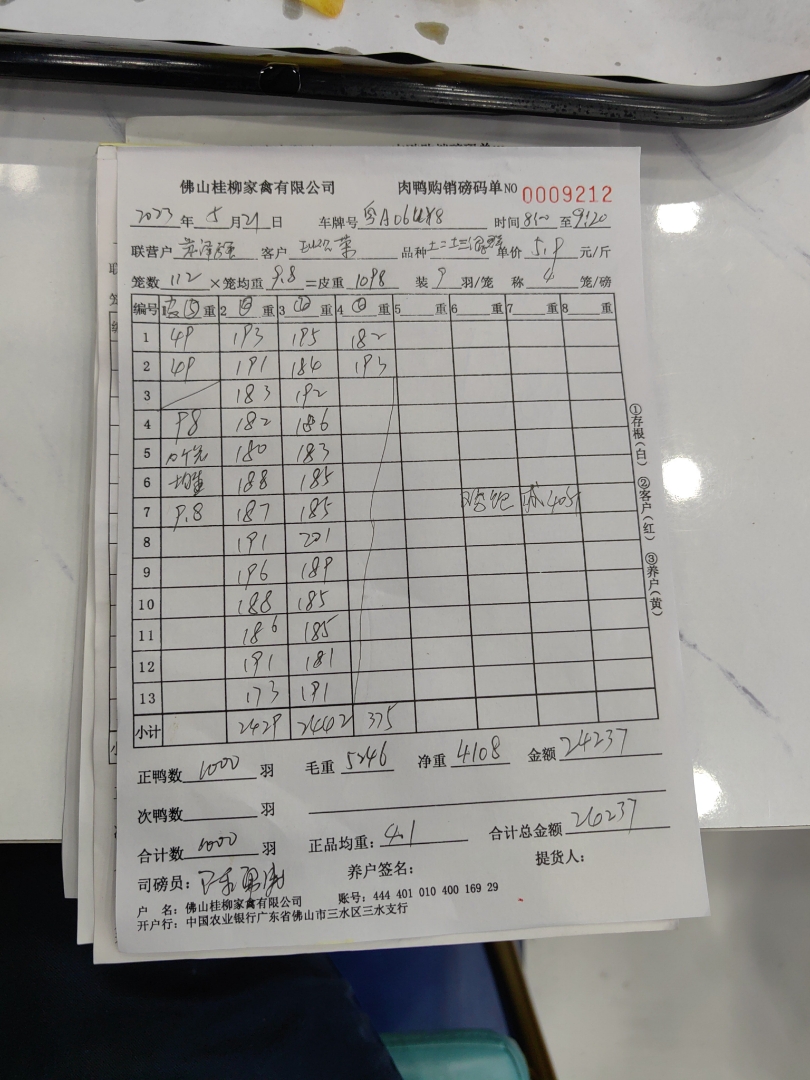 佛山桂柳家禽有限公司 肉鸭购销磅码单 NO 0009212
2023年5月21日 车牌号 粤A06 时间 8:00 至 9:20
联营户 客户 品种 单价 5.9 元/斤
笼数 112 ×笼均重 9.8 =皮重 1098 装 9 羽/笼 称 4 笼/磅
编号 1 皮重 2 重 3 重 4 重 5 重 6 重 7 重 8 重
1 49 193 195 182
2 49 191 184 193
3 183 192
4 98 182 186
5 180 183
6 均重 188 185
7 9.8 187 185
8 191 201
9 196 189
10 188 185
11 186 185
12 191 181
13 173 191
小计 2429 2442 375
正鸭数 1000 羽 毛重 5246 净重 4108 金额 24237
次鸭数 羽
合计数 1000 羽 正品均重: 4.1 合计总金额 24237
司磅员: 养户签名: 提货人:
户 名: 佛山桂柳家禽有限公司 账号: 444 401 010 400 169 29
开户行: 中国农业银行广东省佛山市三水区三水支行
①存根(白) ②客户(红) ③养户(黄)